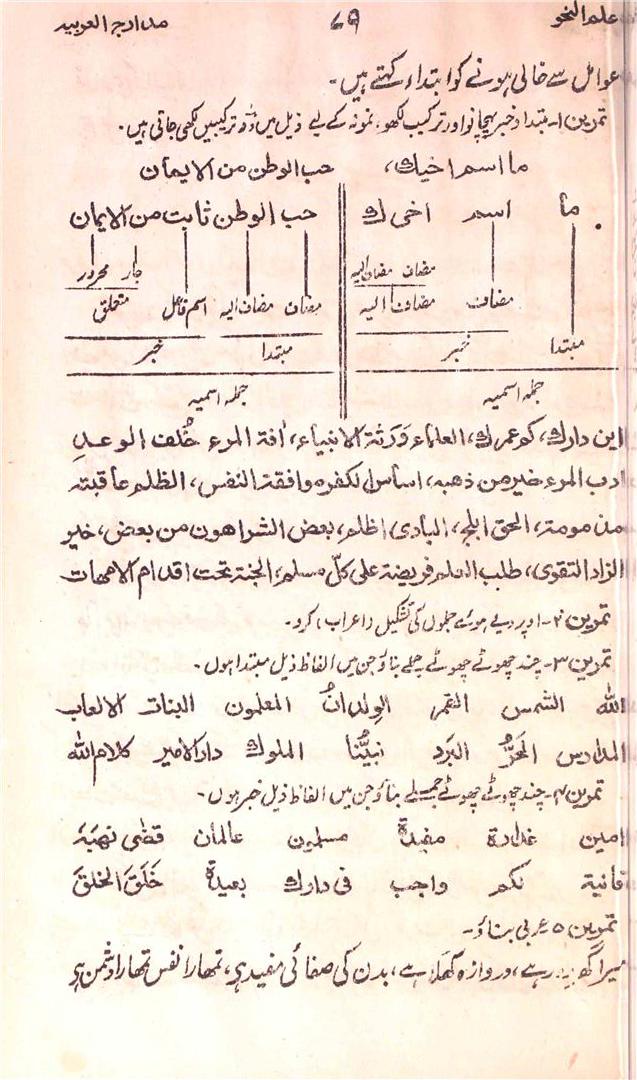 علم النحو ۷۹ مدارج العربیہ
عوامل سے خالی ہونے کو ابتداء کہتے ہیں۔
تمرین ۱۔ مبتدا و خبر پہچانو اور ترکیب لکھو، نمونہ کے لیے ذیل میں دو ترکیبیں لکھی جاتی ہیں۔
ما اسم اخیك، حب الوطن من الایمان
ما اسم اخی ك حب الوطن ثابت من الایمان
مضاف مضاف الیہ جار مجرور
مضاف مضاف الیہ مضاف مضاف الیہ اسم فاعل متعلق
مبتدا خبر مبتدا خبر
جملہ اسمیہ جملہ اسمیہ
این دارك، كم عمرك، العلماء وَرَثة الانبیاء، اٰفة المرء خُلف الوعد
ادب المرء خیر من ذهبه، اساس الكفر موافقة النفس، الظلم عاقبته
مذمومة، الحق ابلج، البادی اظلم، بعض الشر اهون من بعض، خیر
الزاد التقوی، طلب العلم فریضة علی كلّ مسلم، الجنة تحت اقدام الامهات
تمرین ۲۔ اوپر دیے ہوئے جملوں کی تشکیل (اعراب) کرو۔
تمرین ۳۔ چند چھوٹے چھوٹے جملے بناؤ جن میں الفاظ ذیل مبتدا ہوں۔
الله الشمس القمر الوِلدانُ المعلمون البنات الالعاب
المدارس الحَرُّ البَرد نبیُّنا الملوك دار الامیر كلام الله
تمرین ۴۔ چند چھوٹے چھوٹے جملے بناؤ جن میں الفاظ ذیل خبر ہوں۔
امین غدارة مفیدةٌ مسلمین عالمان قضٰی نحبَه
فانیة لكم واجب فی دارك بعیدةٌ خَلَقَ الخلقَ
تمرین ۵ عربی بناؤ۔
میرا گھر یہ رہے، دروازہ کھلا ہے، بدن کی صفائی مفید ہے، تمہارا نفس تمہارا دشمن ہے